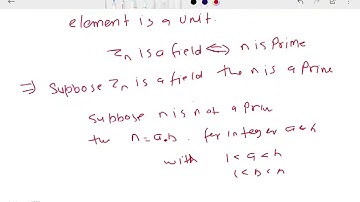 element is a unit.
Zn is a field ⟺ n is Prime
⇒ Suppose Zn is a field the n is a Prime
Suppose n is not a Prim
the n = a.b. for integer a & b
with 1 < a < n
1 < b < n